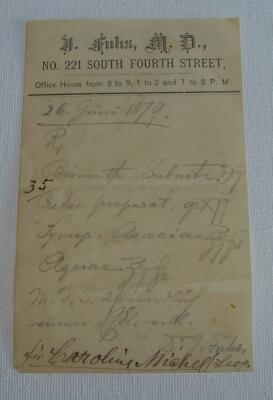 J. Fuhs, M. D.,
NO. 221 SOUTH FOURTH STREET,
Office Hours from 8 to 9, 1 to 2 and 7 to 8 P. M.
26. Juni 1879.
Rx
Bismuth Subnitr. ʒij
35
Cretae preparat. grXII
Syrup. Acaciae ℥jfs
Aquae ℥jfs
M. D. S. 2stündlich
einen
Dr. J. Fuhs.
für Caroline Michel